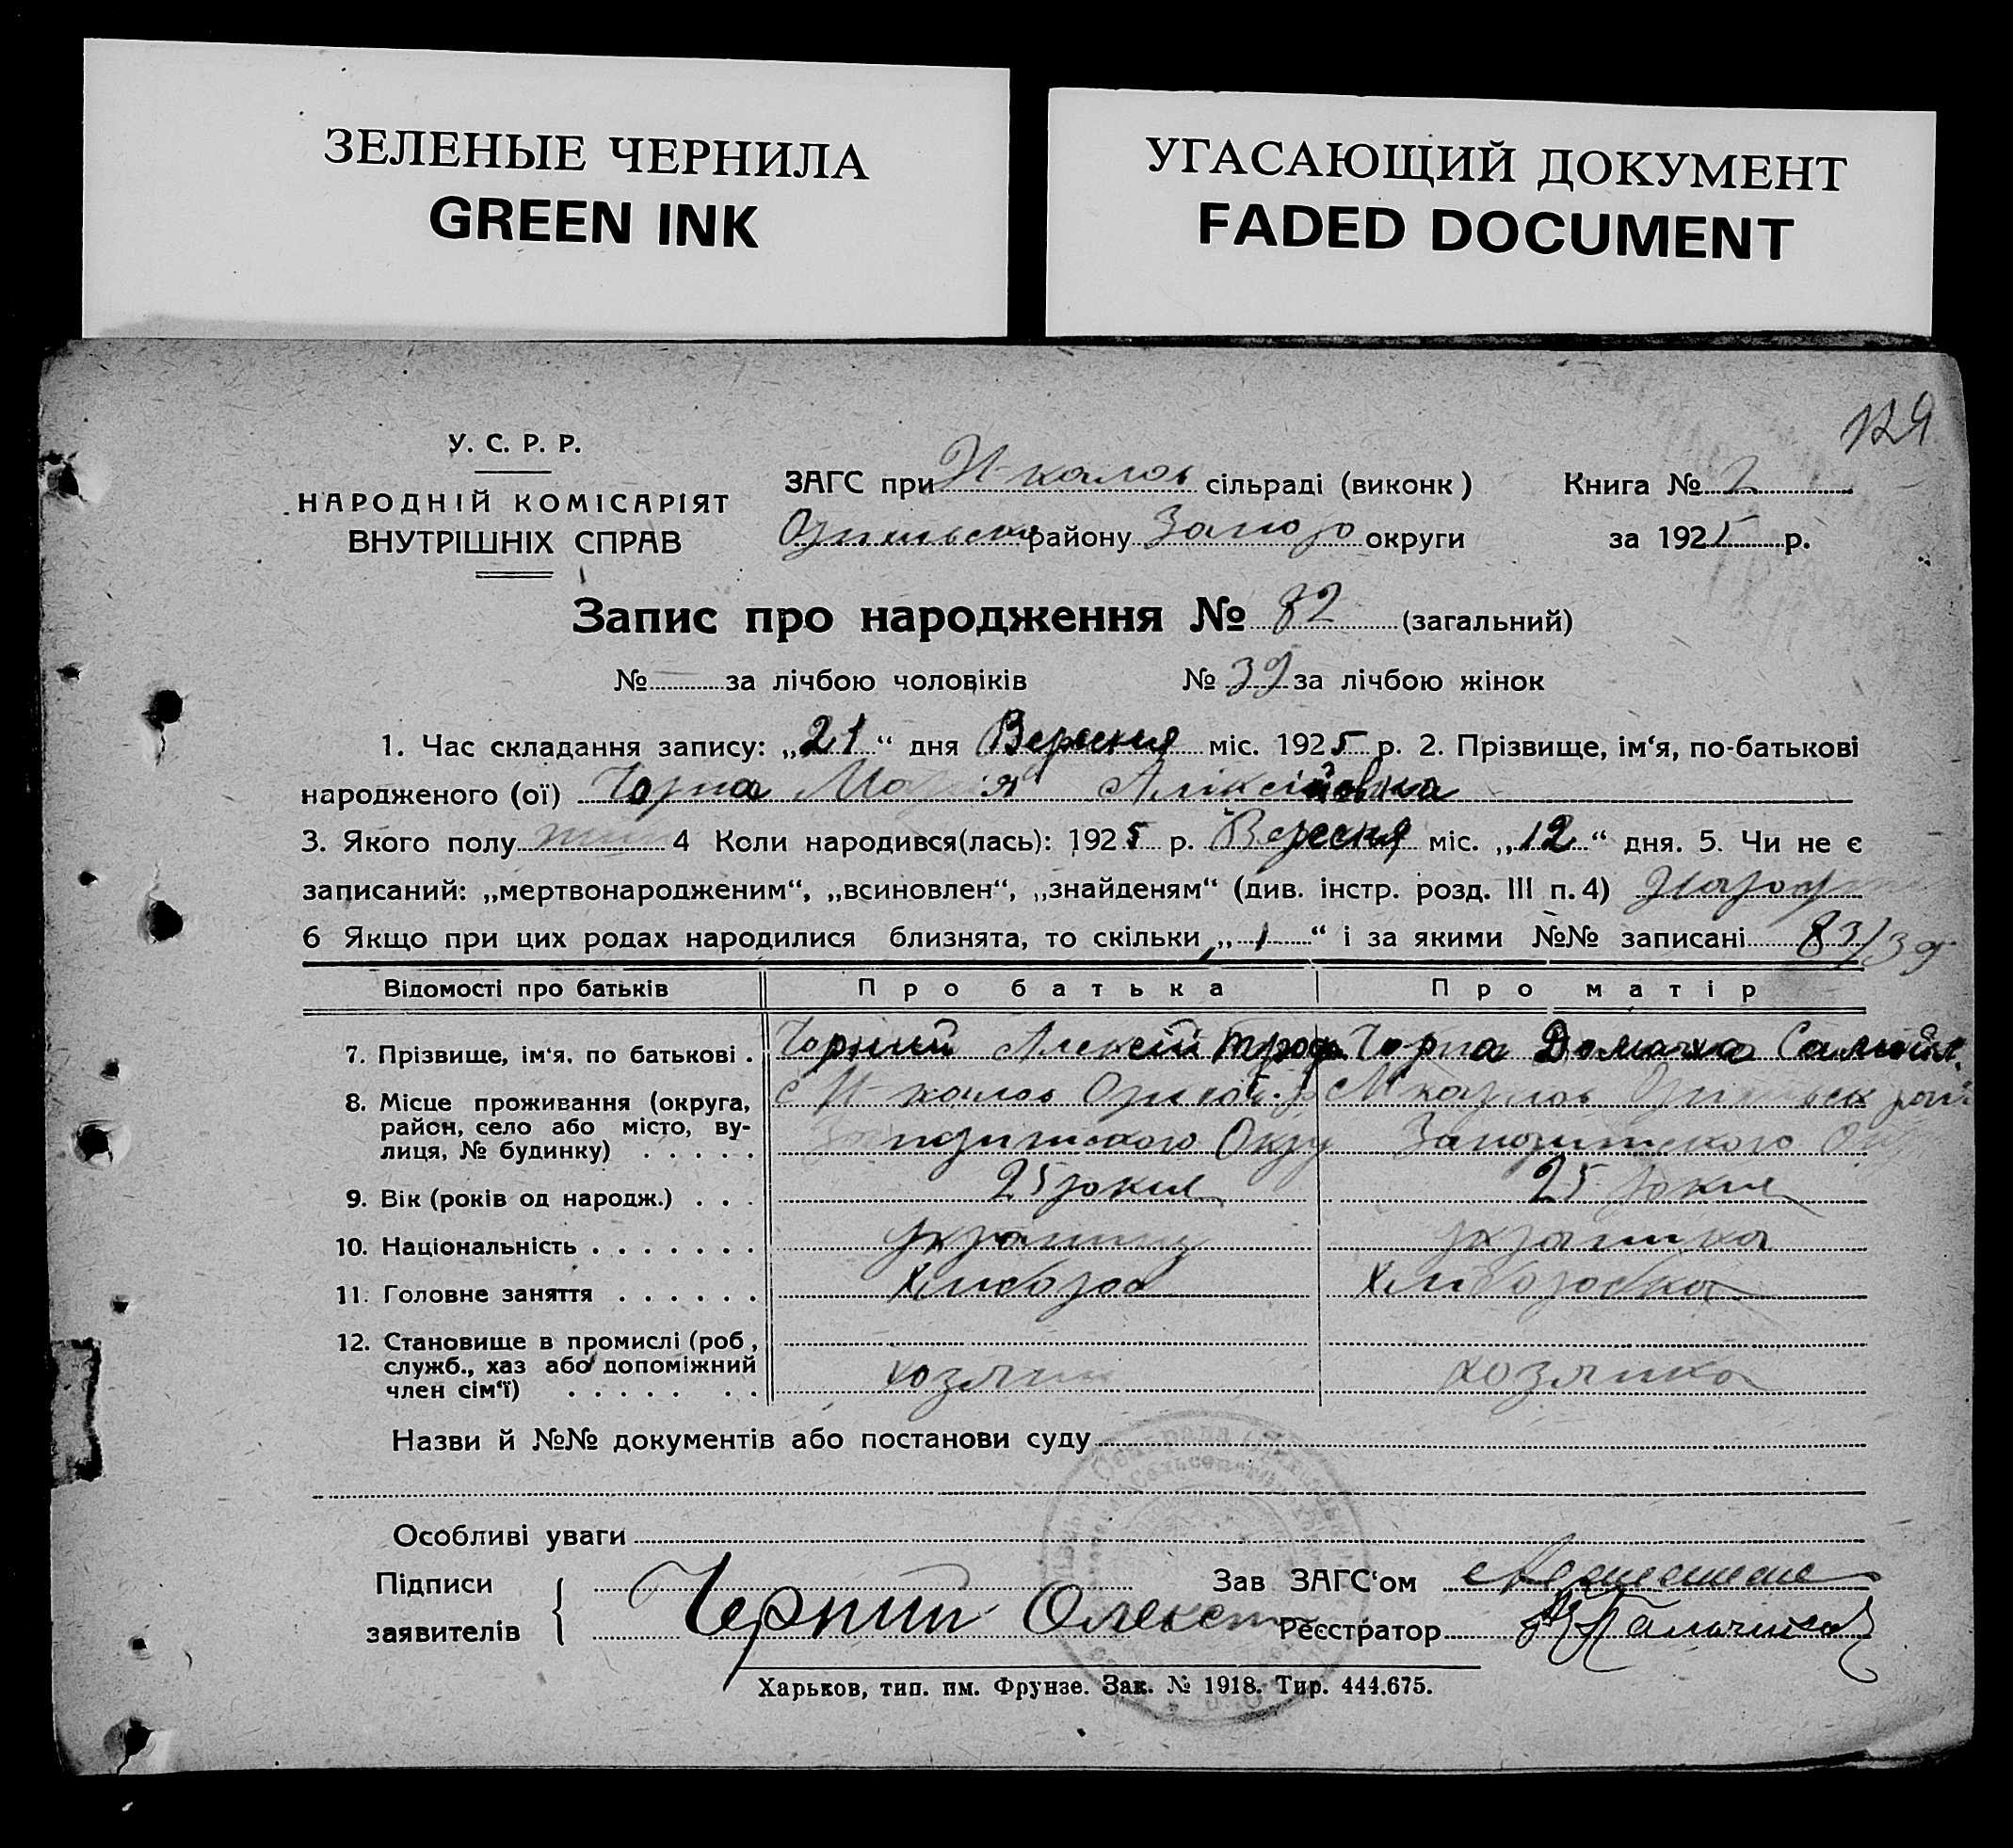 ЗЕЛЕНЫЕ ЧЕРНИЛА
GREEN INK
УГАСАЮЩИЙ ДОКУМЕНТ
FADED DOCUMENT
129
У. С. Р. Р.
НАРОДНІЙ КОМІСАРІЯТ
ВНУТРІШНІХ СПРАВ
ЗАГС при сільраді (виконк)
району Запор округи
Книга № 2
за 1925 р.
Запис про народження № 82 (загальний)
№ — за лічбою чоловіків № 39 за лічбою жінок
1. Час складання запису: „21“ дня Вересня міс. 1925 р. 2. Прізвище, ім‘я, по-батькові
народженого (ої) Чорна Марія Аліксіївна
3. Якого полу жін 4 Коли народився(лась): 1925 р. Вересня міс. „12“ дня. 5. Чи не є
записаний: „мертвонародженим“, „всиновлен“, „знайденям“ (див. інстр. розд. III п. 4)
6 Якщо при цих родах народилися близнята, то скільки „1“ і за якими №№ записані 83/39
Відомості про батьків Про батька Про матір
7. Прізвище, ім‘я, по батькові . Чорний Алексій Троф Чорна Домаха Самойл.
8. Місце проживання (округа,
район, село або місто, ву-
лиця, № будинку) . . . . . Окру
9. Вік (років од народж.) . . . 25 рокив 25 рокив
10. Національність . . . . . . . украинец украинка
11. Головне заняття . . . . . . Хлибороб Хлиборобка
12. Становище в промислі (роб,
служб., хаз або допоміжний
член сім‘ї) . . . . . . . хозяин хозяика
Назви й №№ документів або постанови суду
Особливі уваги
Підписи
заявителів
Чорний Олексій
Зав ЗАГС‘ом
Реєстратор
Харьков, тип. им. Фрунзе. Зак. № 1918. Тир. 444.675.